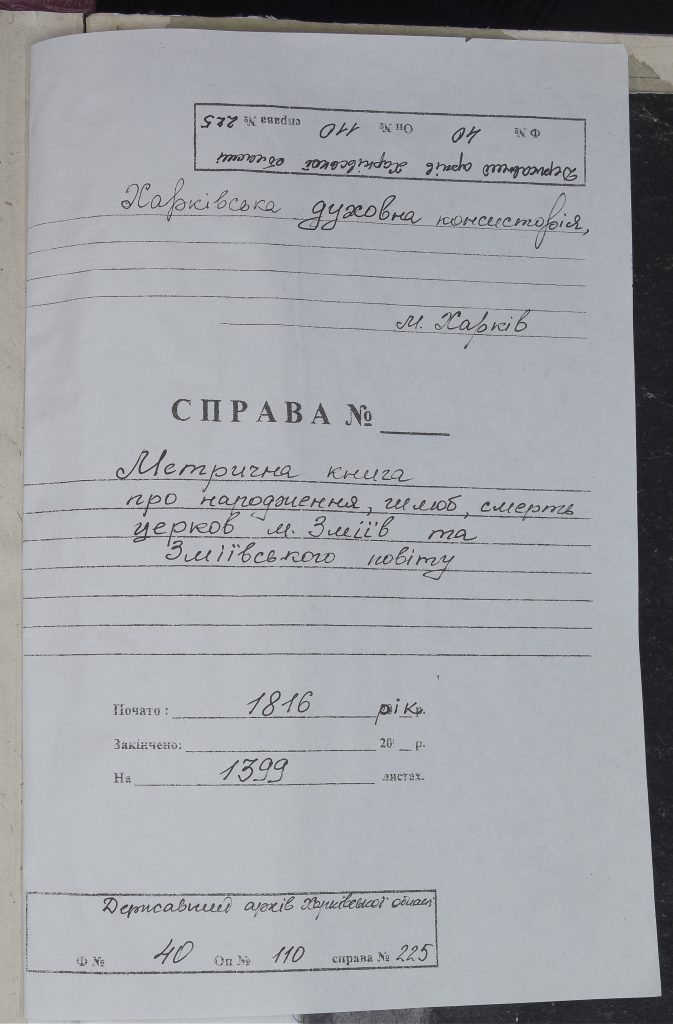 Державний архів Харківської області
Ф № 40 Оп № 110 справа № 225
Харківська духовна консисторія,
м. Харків
СПРАВА № ____
Метрична книга
про народження, шлюб, смерть
церков м. Зміїв та
Зміївського повіту
Почато: 1816 рік
Закінчено: 20 __ р.
На 1399 листах.
Державний архів Харківської області
Ф № 40 Оп № 110 справа № 225